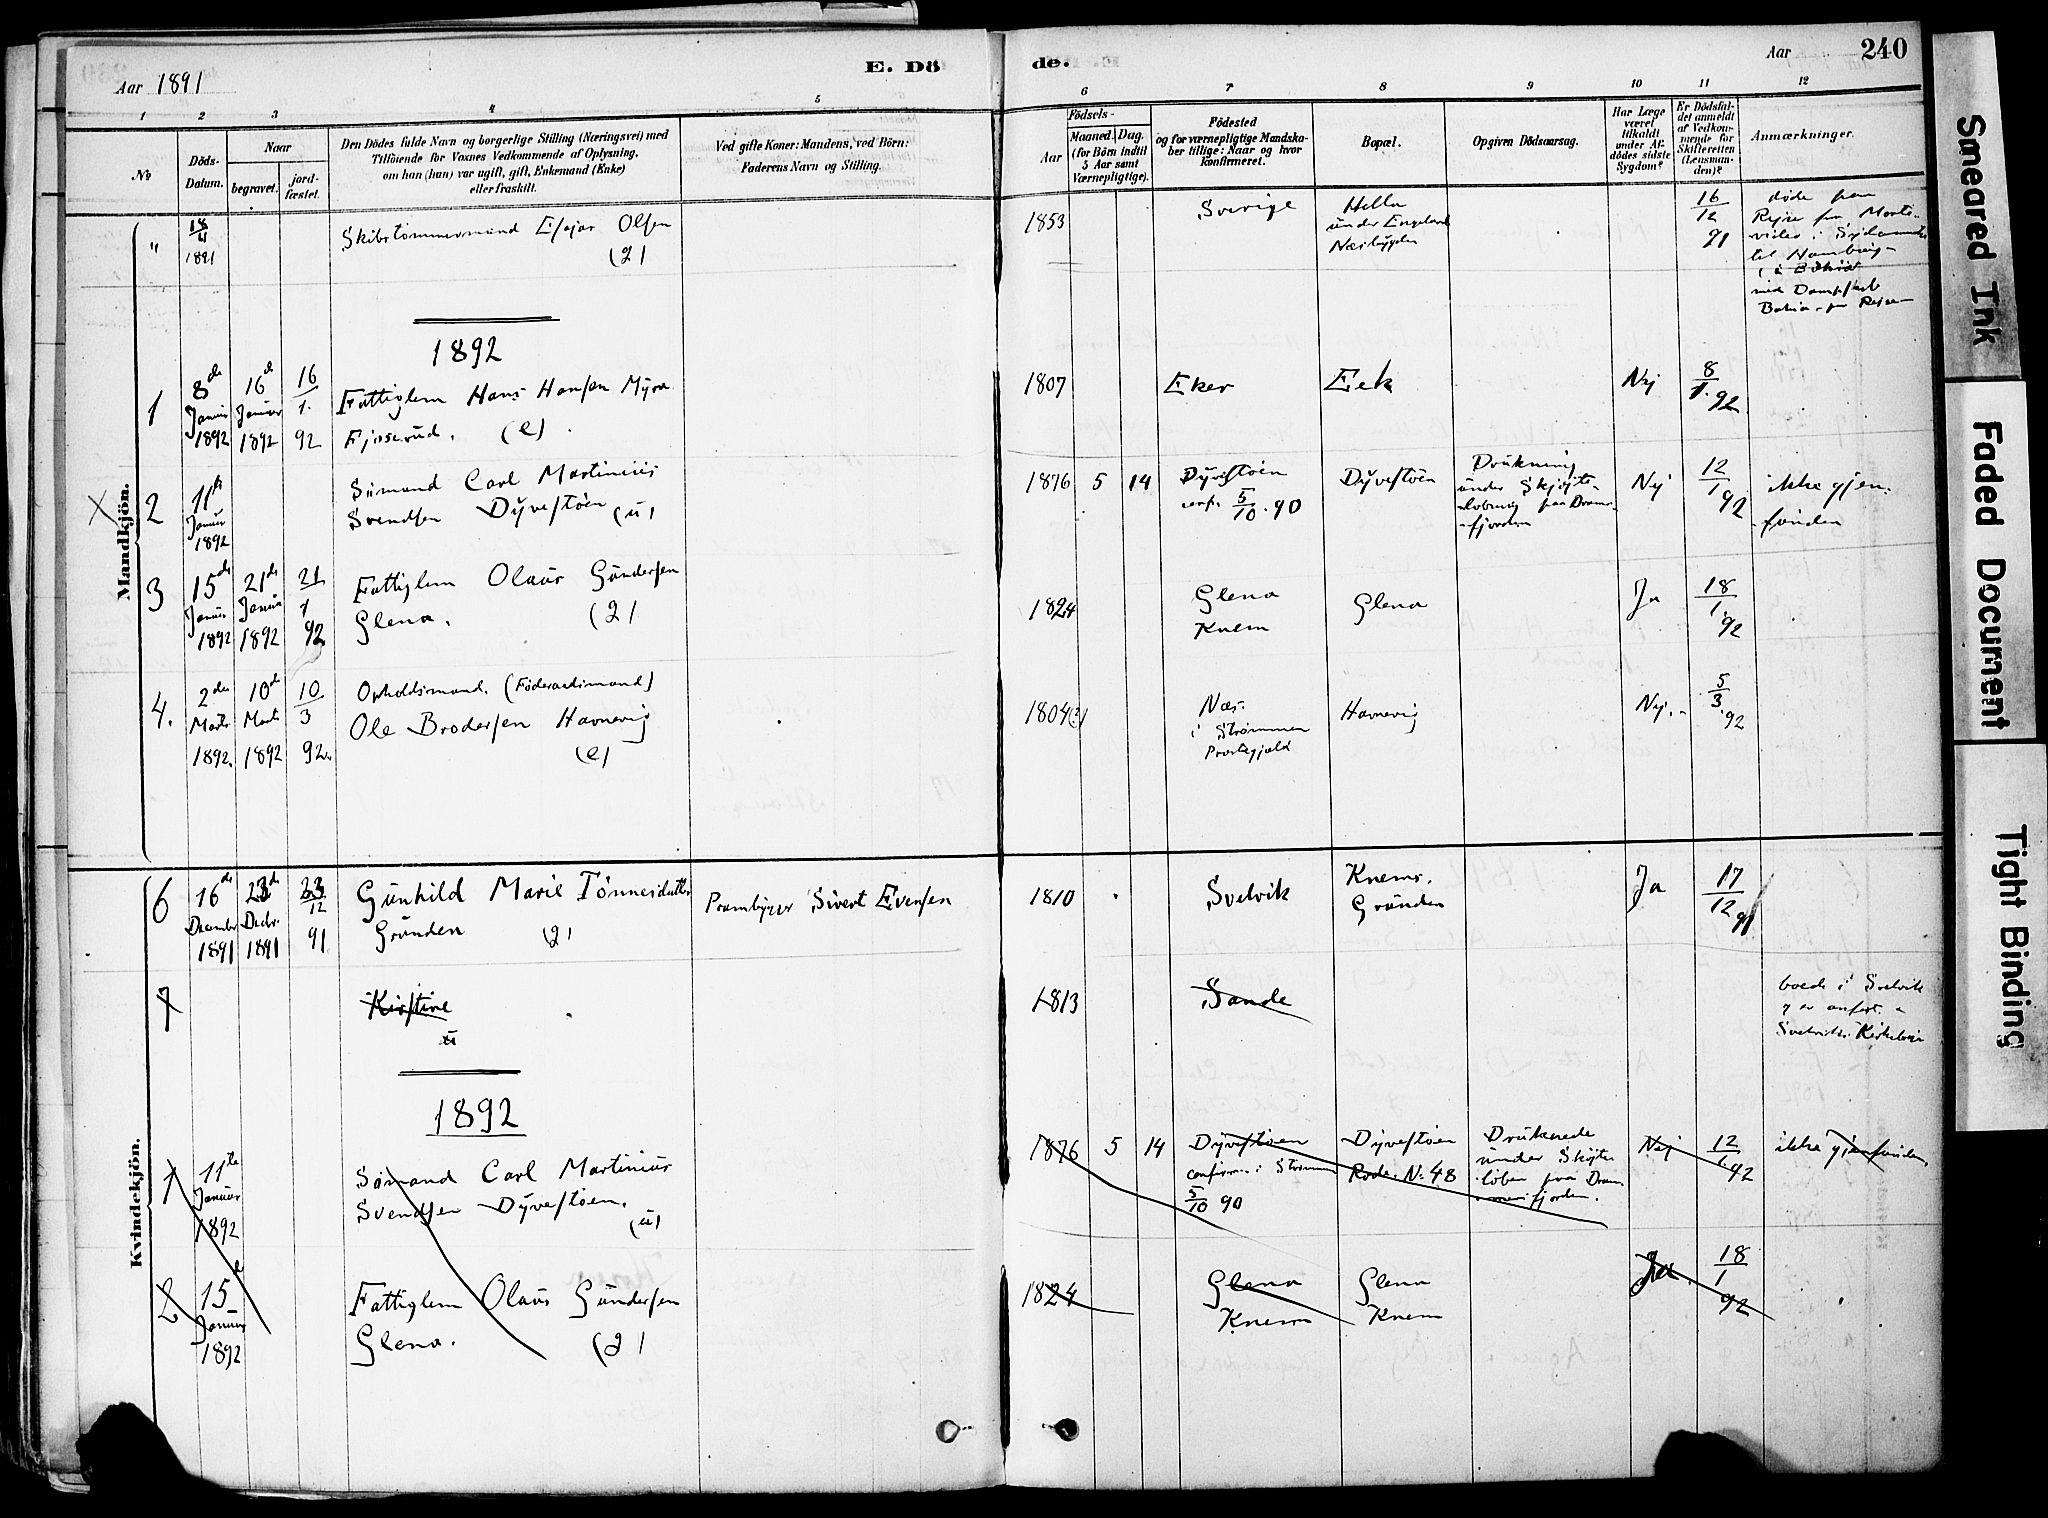 Aar 1891
E. Dö
de.
Aar
240
1
2
3
4
5
6
7
8
9
10
11
12
No
Döds-
Datum.
Naar
begravet.
jord-
fæstet.
Den Dödes fulde Navn og borgerlige Stilling (Næringsvei) med
Tilföiende for Voxnes Vedkommende af Oplysning,
om han (hun) var ugift, gift, Enkemand (Enke)
eller fraskilt.
Ved gifte Koner: Mandens, ved Börn:
Faderens Navn og Stilling.
Födsels-
Aar
Maaned. Dag.
(for Börn indtil
5 Aar samt
Værnepligtige).
Födested
og for værnepligtige Mandska-
ber tillige: Naar og hvor
konfirmeret.
Bopæl.
Opgiven Dödsaarsag.
Har Læge
været
tilkaldt
under Af-
dödes sidste
Sygdom?
Er Dödsfal-
det anmeldt
af Vedkom-
mende for
Skifteretten
(Lensman-
den)?
Anmærkninger.
Mandkjön.
"
18
11
1891
Skibstømmermand Esajas Olsen
(2)
1853
Sverige
Hella
under Engeland
Næsbygden
16
12
91
døde paa
Rejse fra
til Hamburg
med Dampskib
Bahia
1892
1
8de
Januar
1892
16de
Januar
1892
16
1.
92
Fattiglem Hans Hansen Myra
Fjoserud. (e).
1807
Eker
Eek
Nej
8
1. 92
X
2
11te
Januar
1892
Sømand Carl Martinius
Svendsen Dyvestøen (u)
1876 5 14
Dyvestøen
conf. 5/10. 90
Dyvestøen
Drukning
under Skøjte-
løbning paa Dram-
fjorden
Nej
12
1 92
ikke gjen-
funden
3
15de
Januar
1892
21de
Januar
1892
21
1
92
Fattiglem Olaus Gundersen
Glena. (2)
1824
Glena
Knem
Glena
Ja
18
1. 92
4.
2den
Marts
1892.
10de
Marts
1892
10
3
92.
Opholdsmand. (Føderaadsmand)
Ole Brodersen Havnevig
(e)
1804(?)
Næs
i Strømmen
Præstegjeld
Havnevig
Nej.
5
3. 92
Kvindekjön.
6
16de
Decembr
1891
23de
Decbr.
1891
23
12
91
Gunhild Marie Tønnesdatter
Grunden (2)
Prambygger Sivert Evensen
1810
Svelvik
Knems.
Grunden
Ja
17
12 91
7
Kirstine
u
1813
Sande
boede i Svelvik
Svelviks Kirkebog
1892
1
11te
Januar
1892
Sømand Carl Martinius
Svendsen Dyvestøen.
(u)
1876 5 14
Dyvestøen
confirm. i Strømm
5/10 90
Dyvestøen
Rode. No. 48
Druknede
under Skøjte
løben paa Dram
mensfjorden.
Nej
12
1. 92
ikke gjenfunden.
2
15de
Januar
1892
Fattiglem Olaus Gundersen
Glena. (2)
1824
Glena
Knem
Glena
Knem
Ja
18
1
92
Smeared Ink
Faded Document
Tight Binding